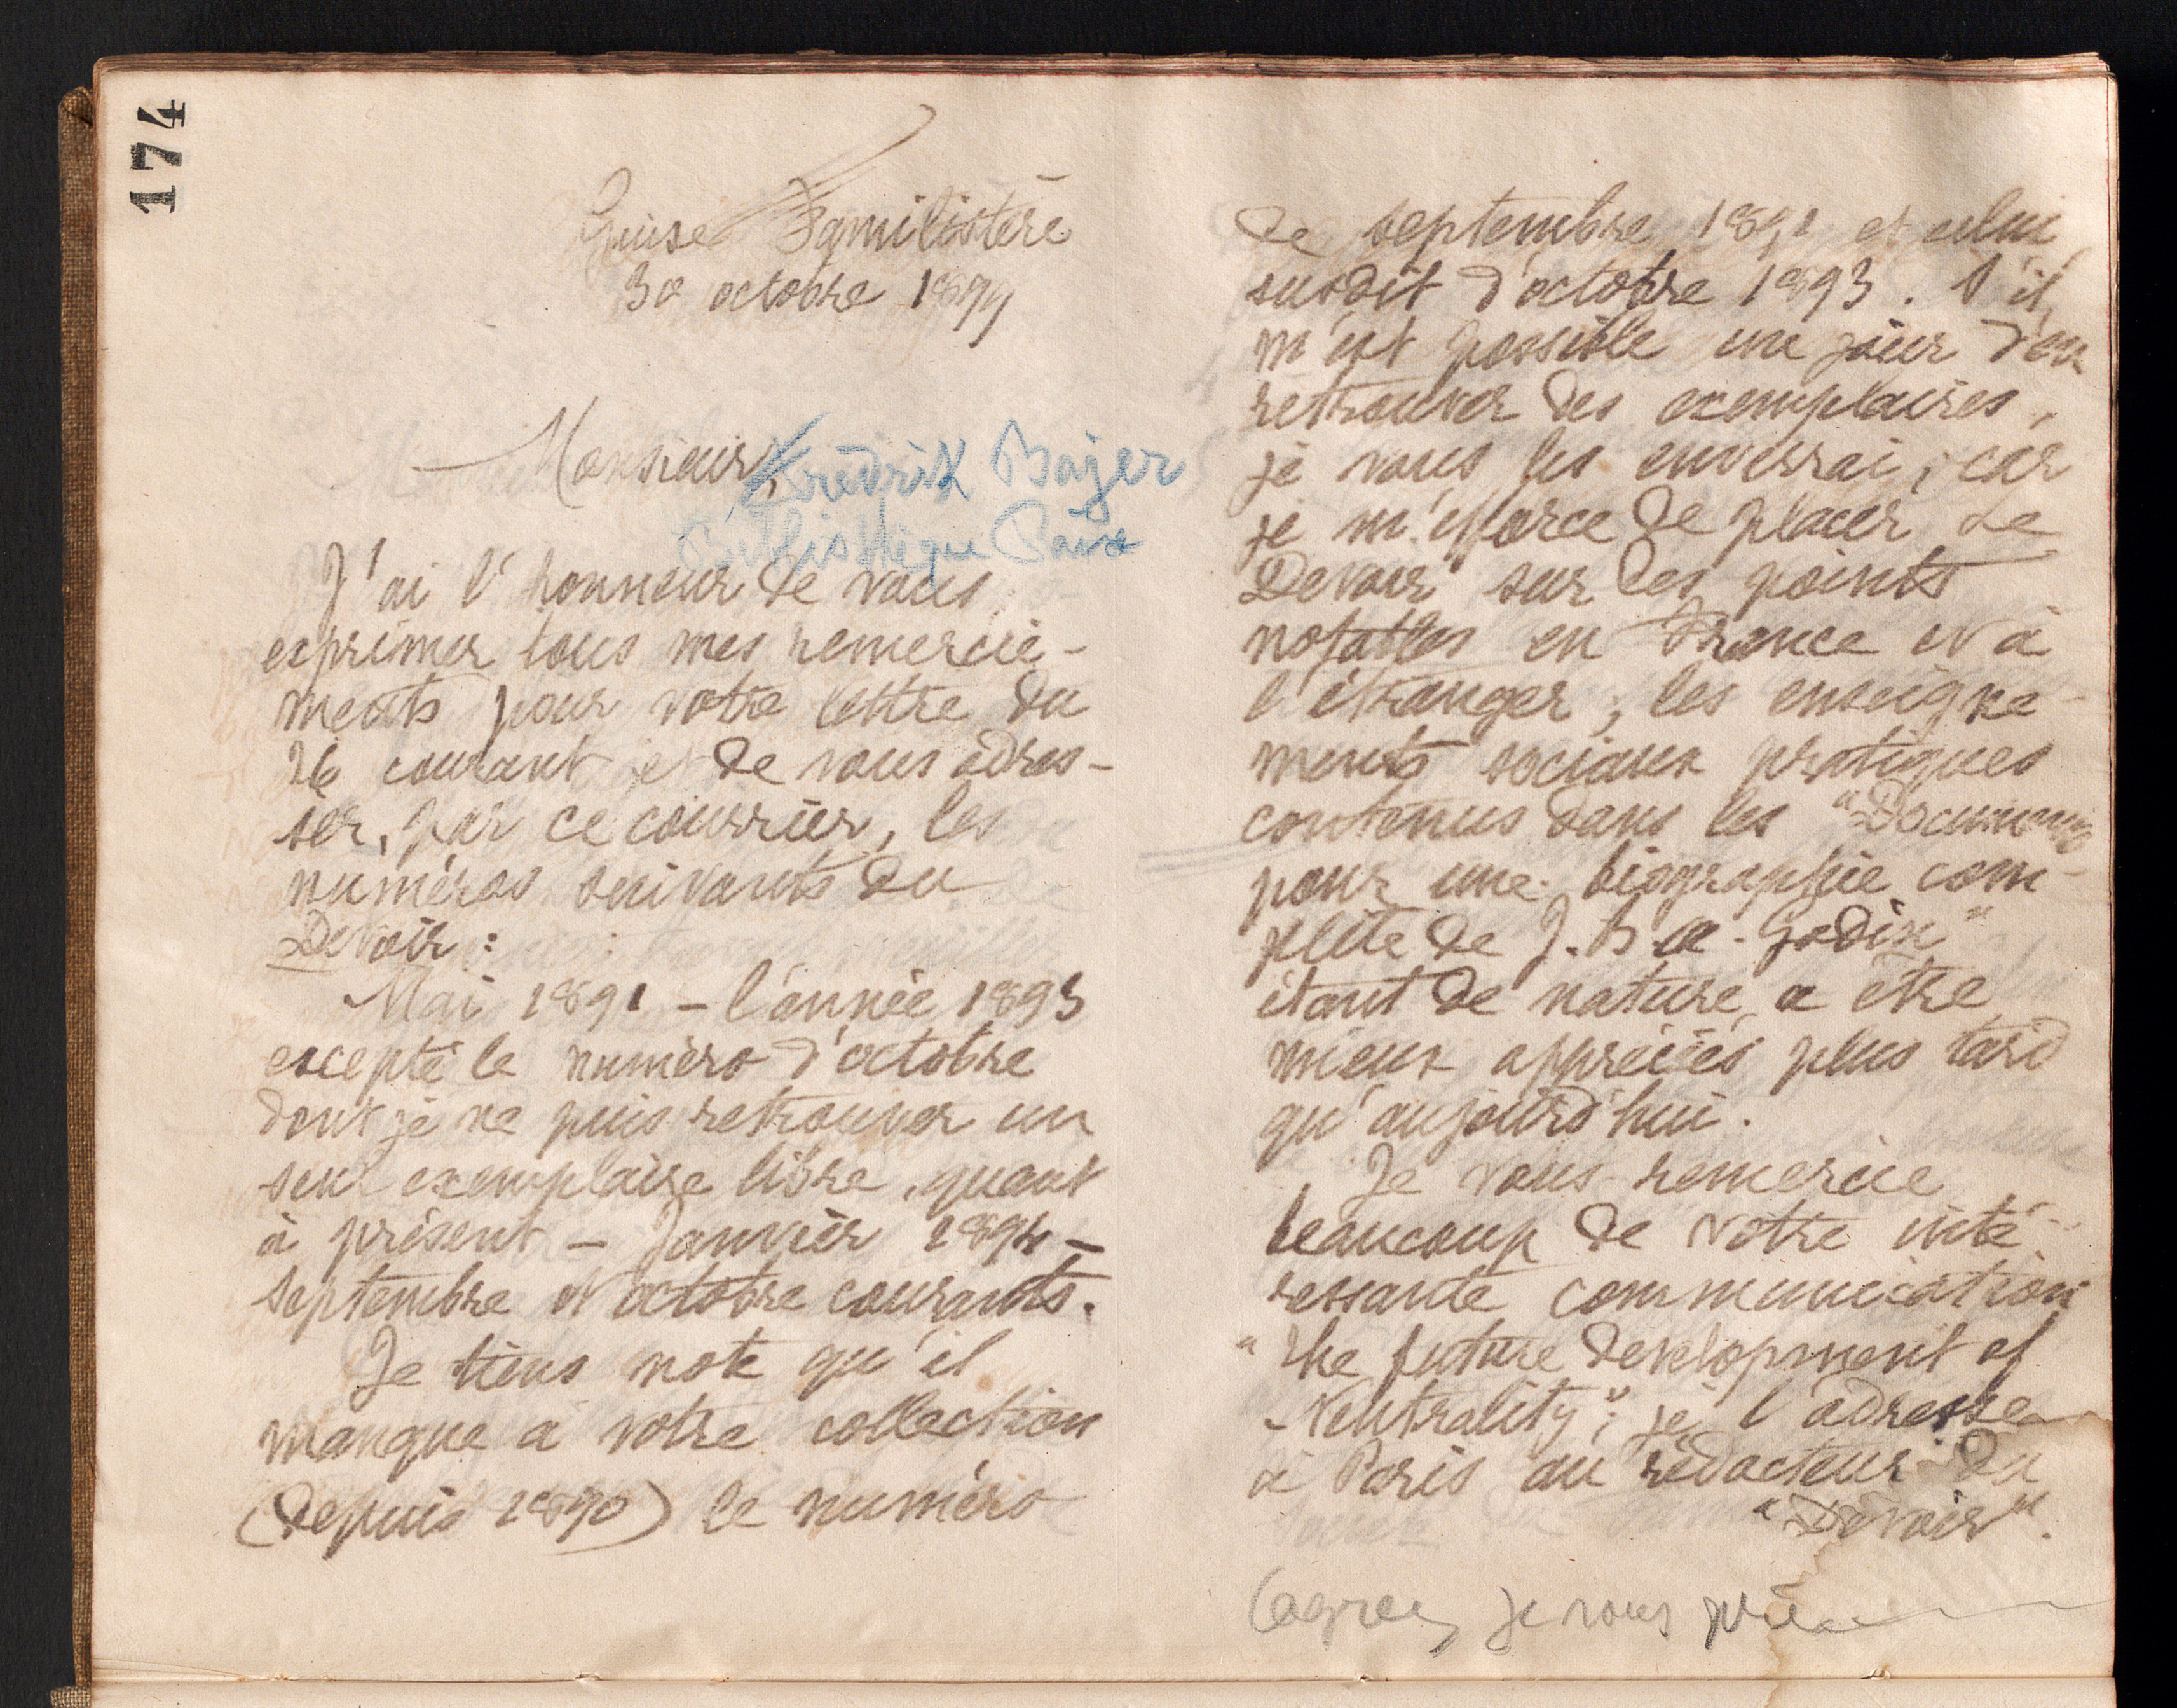 174
Guise Familistère
30 octobre 1899
Monsieur, Frédrik Bajer
Bibliothèque Paix
J'ai l'honneur de vous
exprimer tous mes remercie-
ments pour votre lettre du
26 courant et de vous adres-
ser, par ce courrier, les
numéros suivants du
Devoir :
Mai 1891 – l'année 1893
excepté le numéro d'octobre
dont je ne puis retrouver un
seul exemplaire libre, quant
à présent – Janvier 1894 –
septembre et octobre courants.
Je tiens note qu'il
manque à votre collection
(depuis 1890) le numéro
de septembre 1891 et celui
susdit d'octobre 1893. S'il
m'est possible un jour d'en
retrouver des exemplaires,
je vous les enverrai ; car
je m'efforce de placer Le
Devoir sur les points
notables en France et à
l'étranger ; les enseigne-
ments sociaux pratiques
contenus dans les "Documents
pour une biographie com-
plète de J. B. A. Godin"
étant de nature à être
mieux appréciés plus tard
qu'aujourd'hui.
Je vous remercie
beaucoup de votre inté-
ressante communication
"The future development of
Neutrality" ; je l'adresse
à Paris au rédacteur du
"Devoir".
(agréez je vous prie